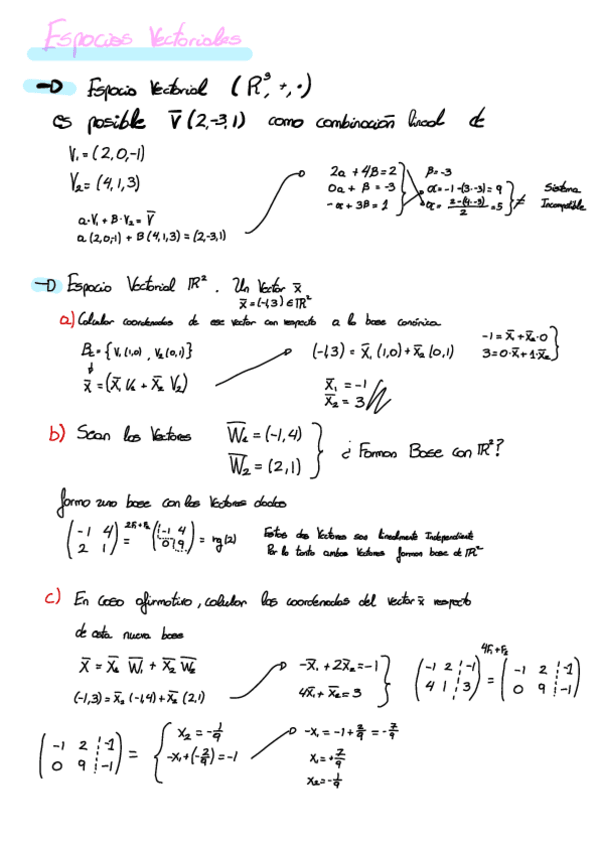 Espacios Vectoriales
→ Espacio Vectorial (R³, +, ·)
es posible V̄ (2,-3,1) como combinación lineal de
V₁ = (2,0,-1)
V₂ = (4,1,3)
a·V₁ + B·V₂ = V̄
a(2,0,-1) + B(4,1,3) = (2,-3,1)
2a + 4B = 2
0a + B = -3
-α + 3B = 1
B = -3
α = -1-(3·-3) = 9
α = 2-(4·-3)/2 = 5
≠
Sistema
Incompatible
→ Espacio Vectorial ℝ². Un Vector x̄
x̄ = (-1,3) ∈ ℝ²
a) Calcular coordenadas de ese vector con respecto a la base canónica
Bc = {V₁(1,0), V₂(0,1)}
x̄ = (x̄₁ V₁ + x̄₂ V₂)
(-1,3) = x̄₁ (1,0) + x̄₂ (0,1)
-1 = x̄₁ + x̄₂·0
3 = 0·x̄₁ + 1·x̄₂
x̄₁ = -1
x̄₂ = 3
b) Sean los Vectores
W̄₁ = (-1,4)
W̄₂ = (2,1)
¿Forman Base con ℝ²?
formo una base con los Vectores dados
(-1 4
2 1)
2F₁+F₂
=
(-1 4
0 9)
= rg(2)
Estos dos Vectores son linealmente Independiente
Por lo tanto ambos Vectores forman base de ℝ²
c) En caso afirmativo, calcular las coordenadas del vector x̄ respecto
de esta nueva base
x̄ = x̄₁ W̄₁ + x̄₂ W̄₂
(-1,3) = x̄₁ (-1,4) + x̄₂ (2,1)
-x̄₁ + 2x̄₂ = -1
4x̄₁ + x̄₂ = 3
(-1 2 | -1
4 1 | 3)
4F₁+F₂
=
(-1 2 | -1
0 9 | -1)
(-1 2 | -1
0 9 | -1)
=
x₂ = -1/9
-x₁ + (-2/9) = -1
-x₁ = -1 + 2/9 = -7/9
x₁ = +7/9
x₂ = -1/9